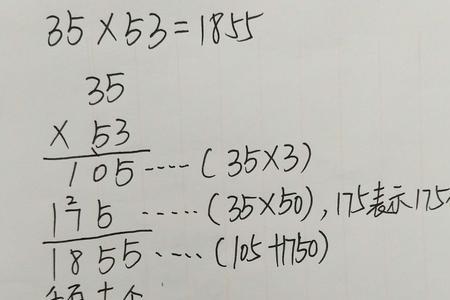 35×53=1855
35
×53
105 ····(35×3)
175 ·····(35×50),175表示175
1855 ····(105+1750)